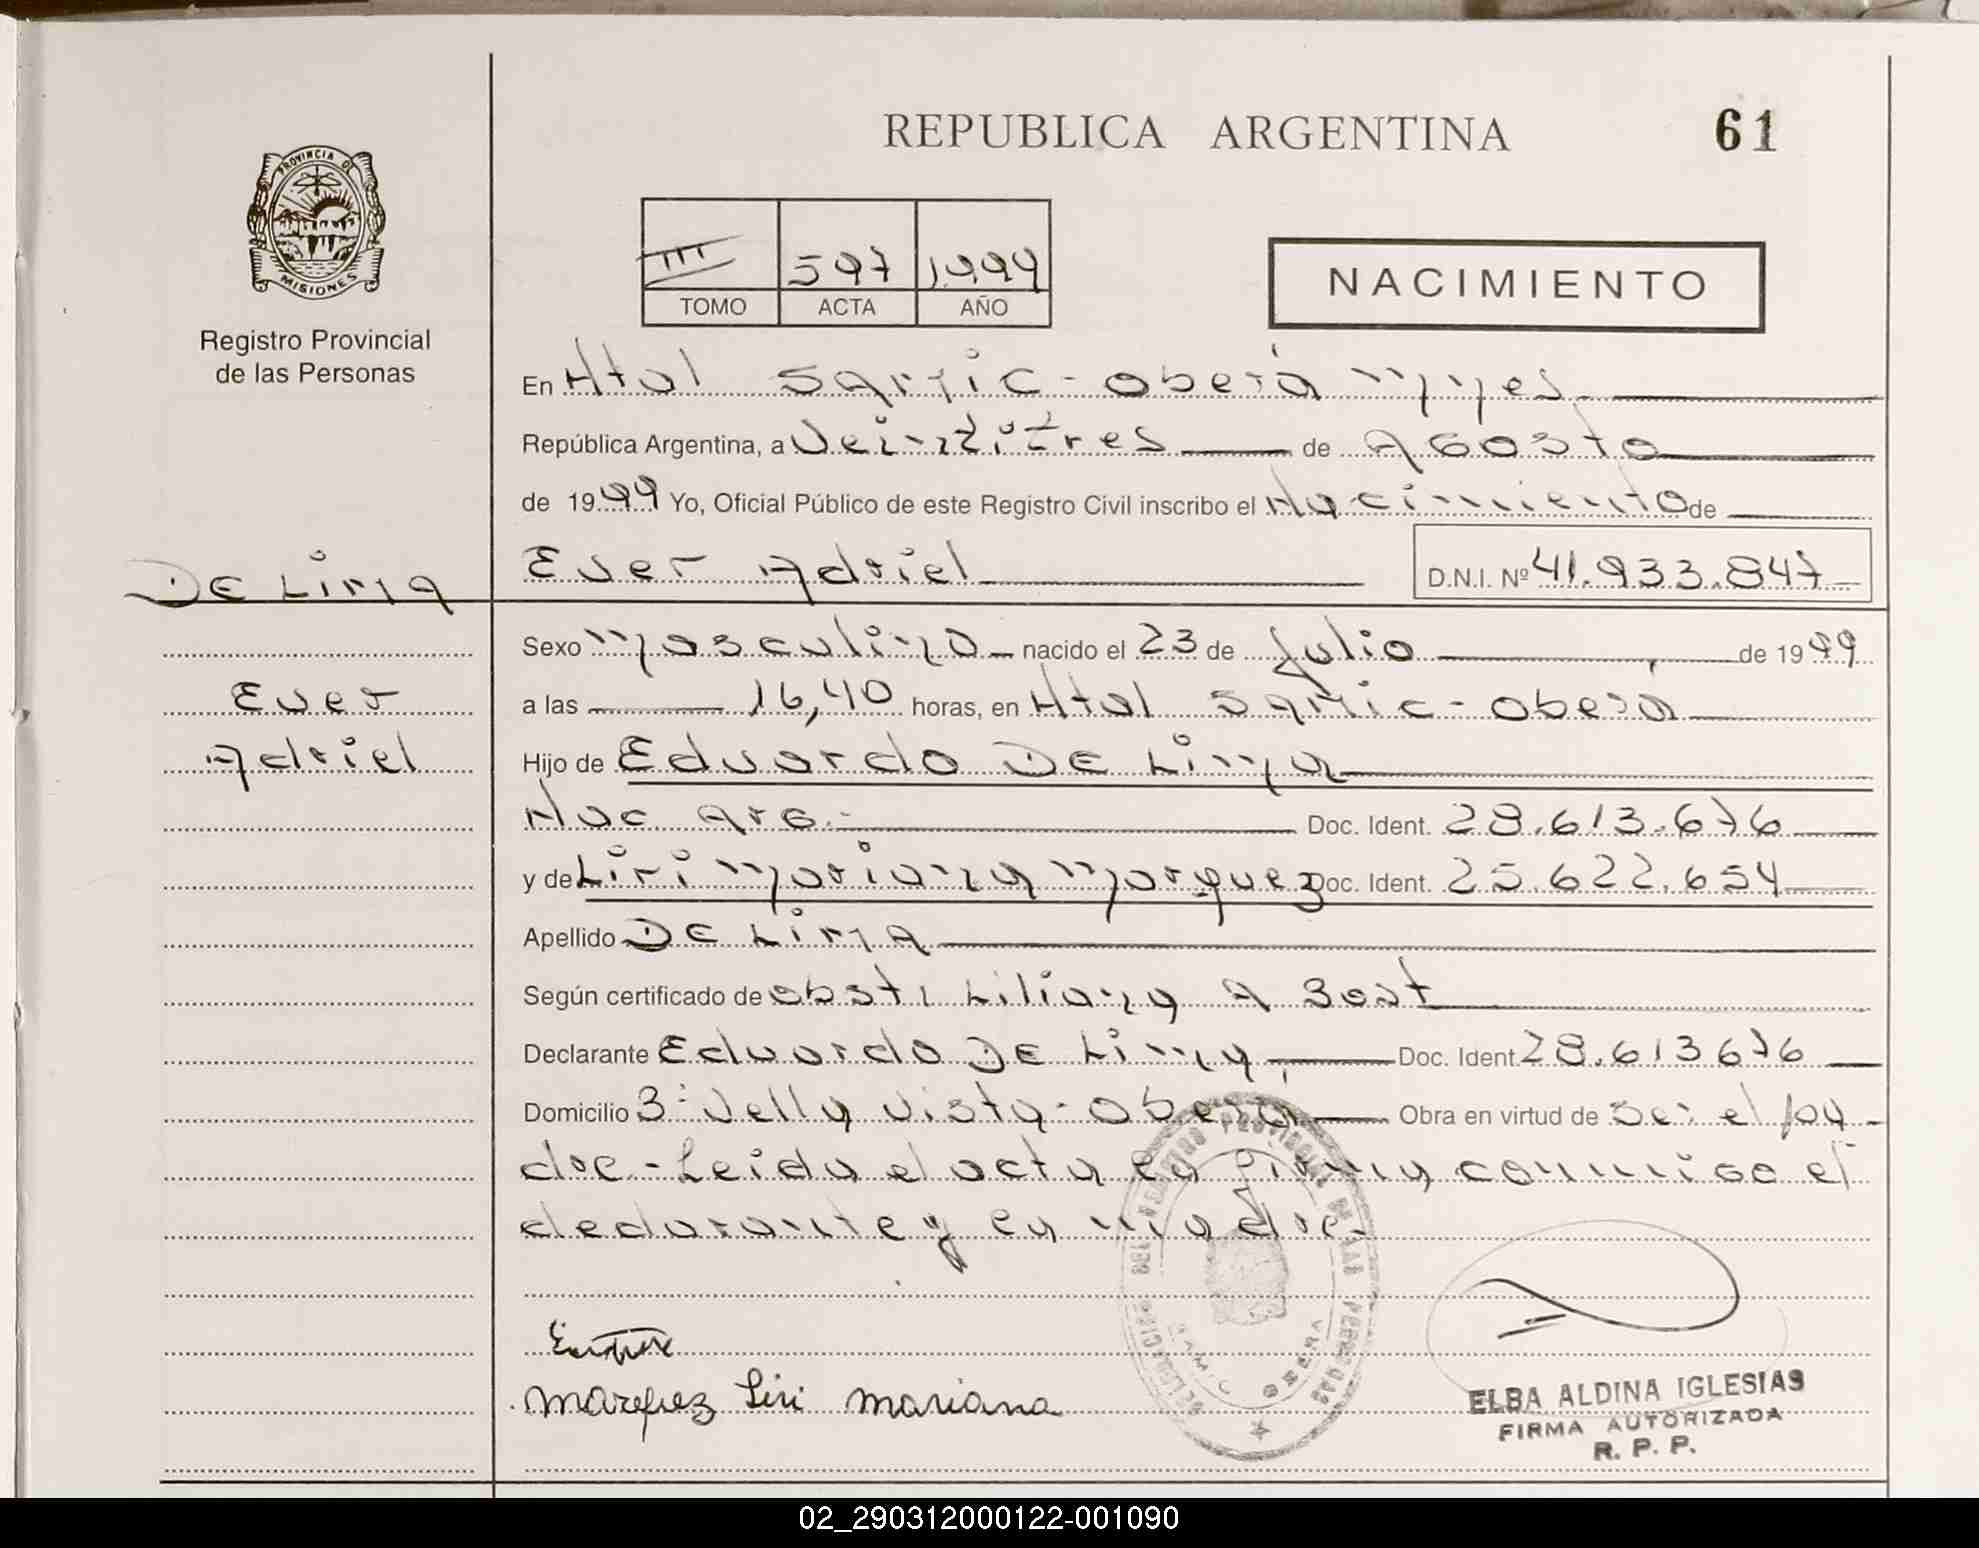 REPUBLICA ARGENTINA
61
PROVINCIA DE
MISIONES
Registro Provincial
de las Personas
III 597 1.999
TOMO ACTA AÑO
NACIMIENTO
En Htal Samic - Oberá Mnes.
República Argentina, a Veintitres de Agosto
de 1999 Yo, Oficial Público de este Registro Civil inscribo el Nacimiento de
DE Lima
Ever Adriel
D.N.I. Nº 41.933.847
Sexo Masculino nacido el 23 de Julio de 1999
Ever
a las 16,40 horas, en Htal Samic - Oberá
Adriel
Hijo de Eduardo DE Lima
Nac Arg. Doc. Ident. 28.613.676
y de Liri Mariana Marquez Doc. Ident. 25.622.654
Apellido DE Lima
Según certificado de obst. Liliana A
Declarante Eduardo DE Lima Doc. Ident. 28.613676
Domicilio Vella Vista - Oberá Obra en virtud de Ser el pa-
dre - Leida el acta la firma conmigo el
declarante y la madre.
DELEGACION DEL REGISTRO PROVINCIAL DE LAS PERSONAS
SAMIC OBERA
Marquez Liri Mariana
ELBA ALDINA IGLESIAS
FIRMA AUTORIZADA
R. P. P.
02_290312000122-001090